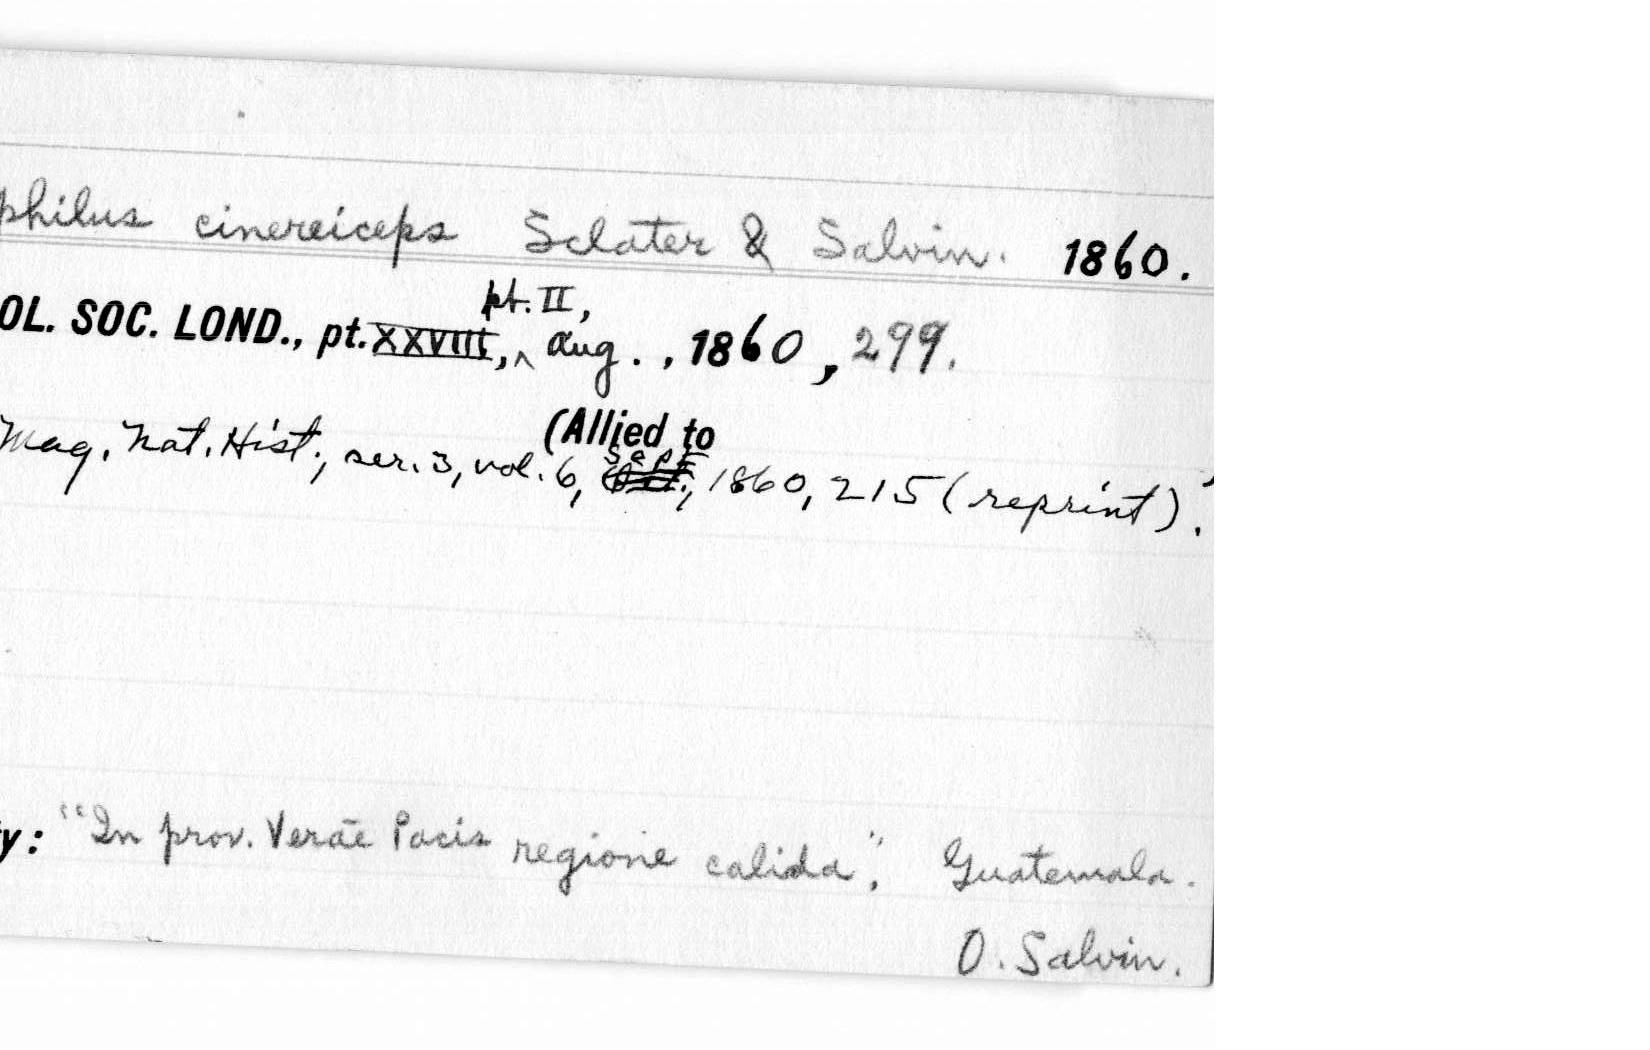 philus cinereiceps Sclater & Salvin. 1860.
pt. II,
OL. SOC. LOND., pt. XXVIII, ^ Aug. , 1860 , 299.
(Allied to
Sept
Mag. Nat. Hist., ser. 3, vol. 6, 1860, 215 (reprint).
y: "In prov. Verae Pacis regione calida", Guatemala.
O. Salvin.